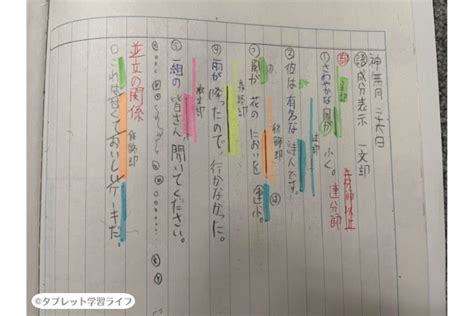 神無月 二十六日
語 成分表示 一文節
文節以上 連文節
主部
①さわやかな風が ふく。
述部
②彼は有名な詩人です。
修飾部
③風が 花の においを 運ぶ。
接続部
④雨が降ったので、行かなかった。
独立部
⑤一組の皆さん、聞いてください。
並立の関係
修飾部
○これは甘くておいしいケーキだ。
©タブレット学習ライフ